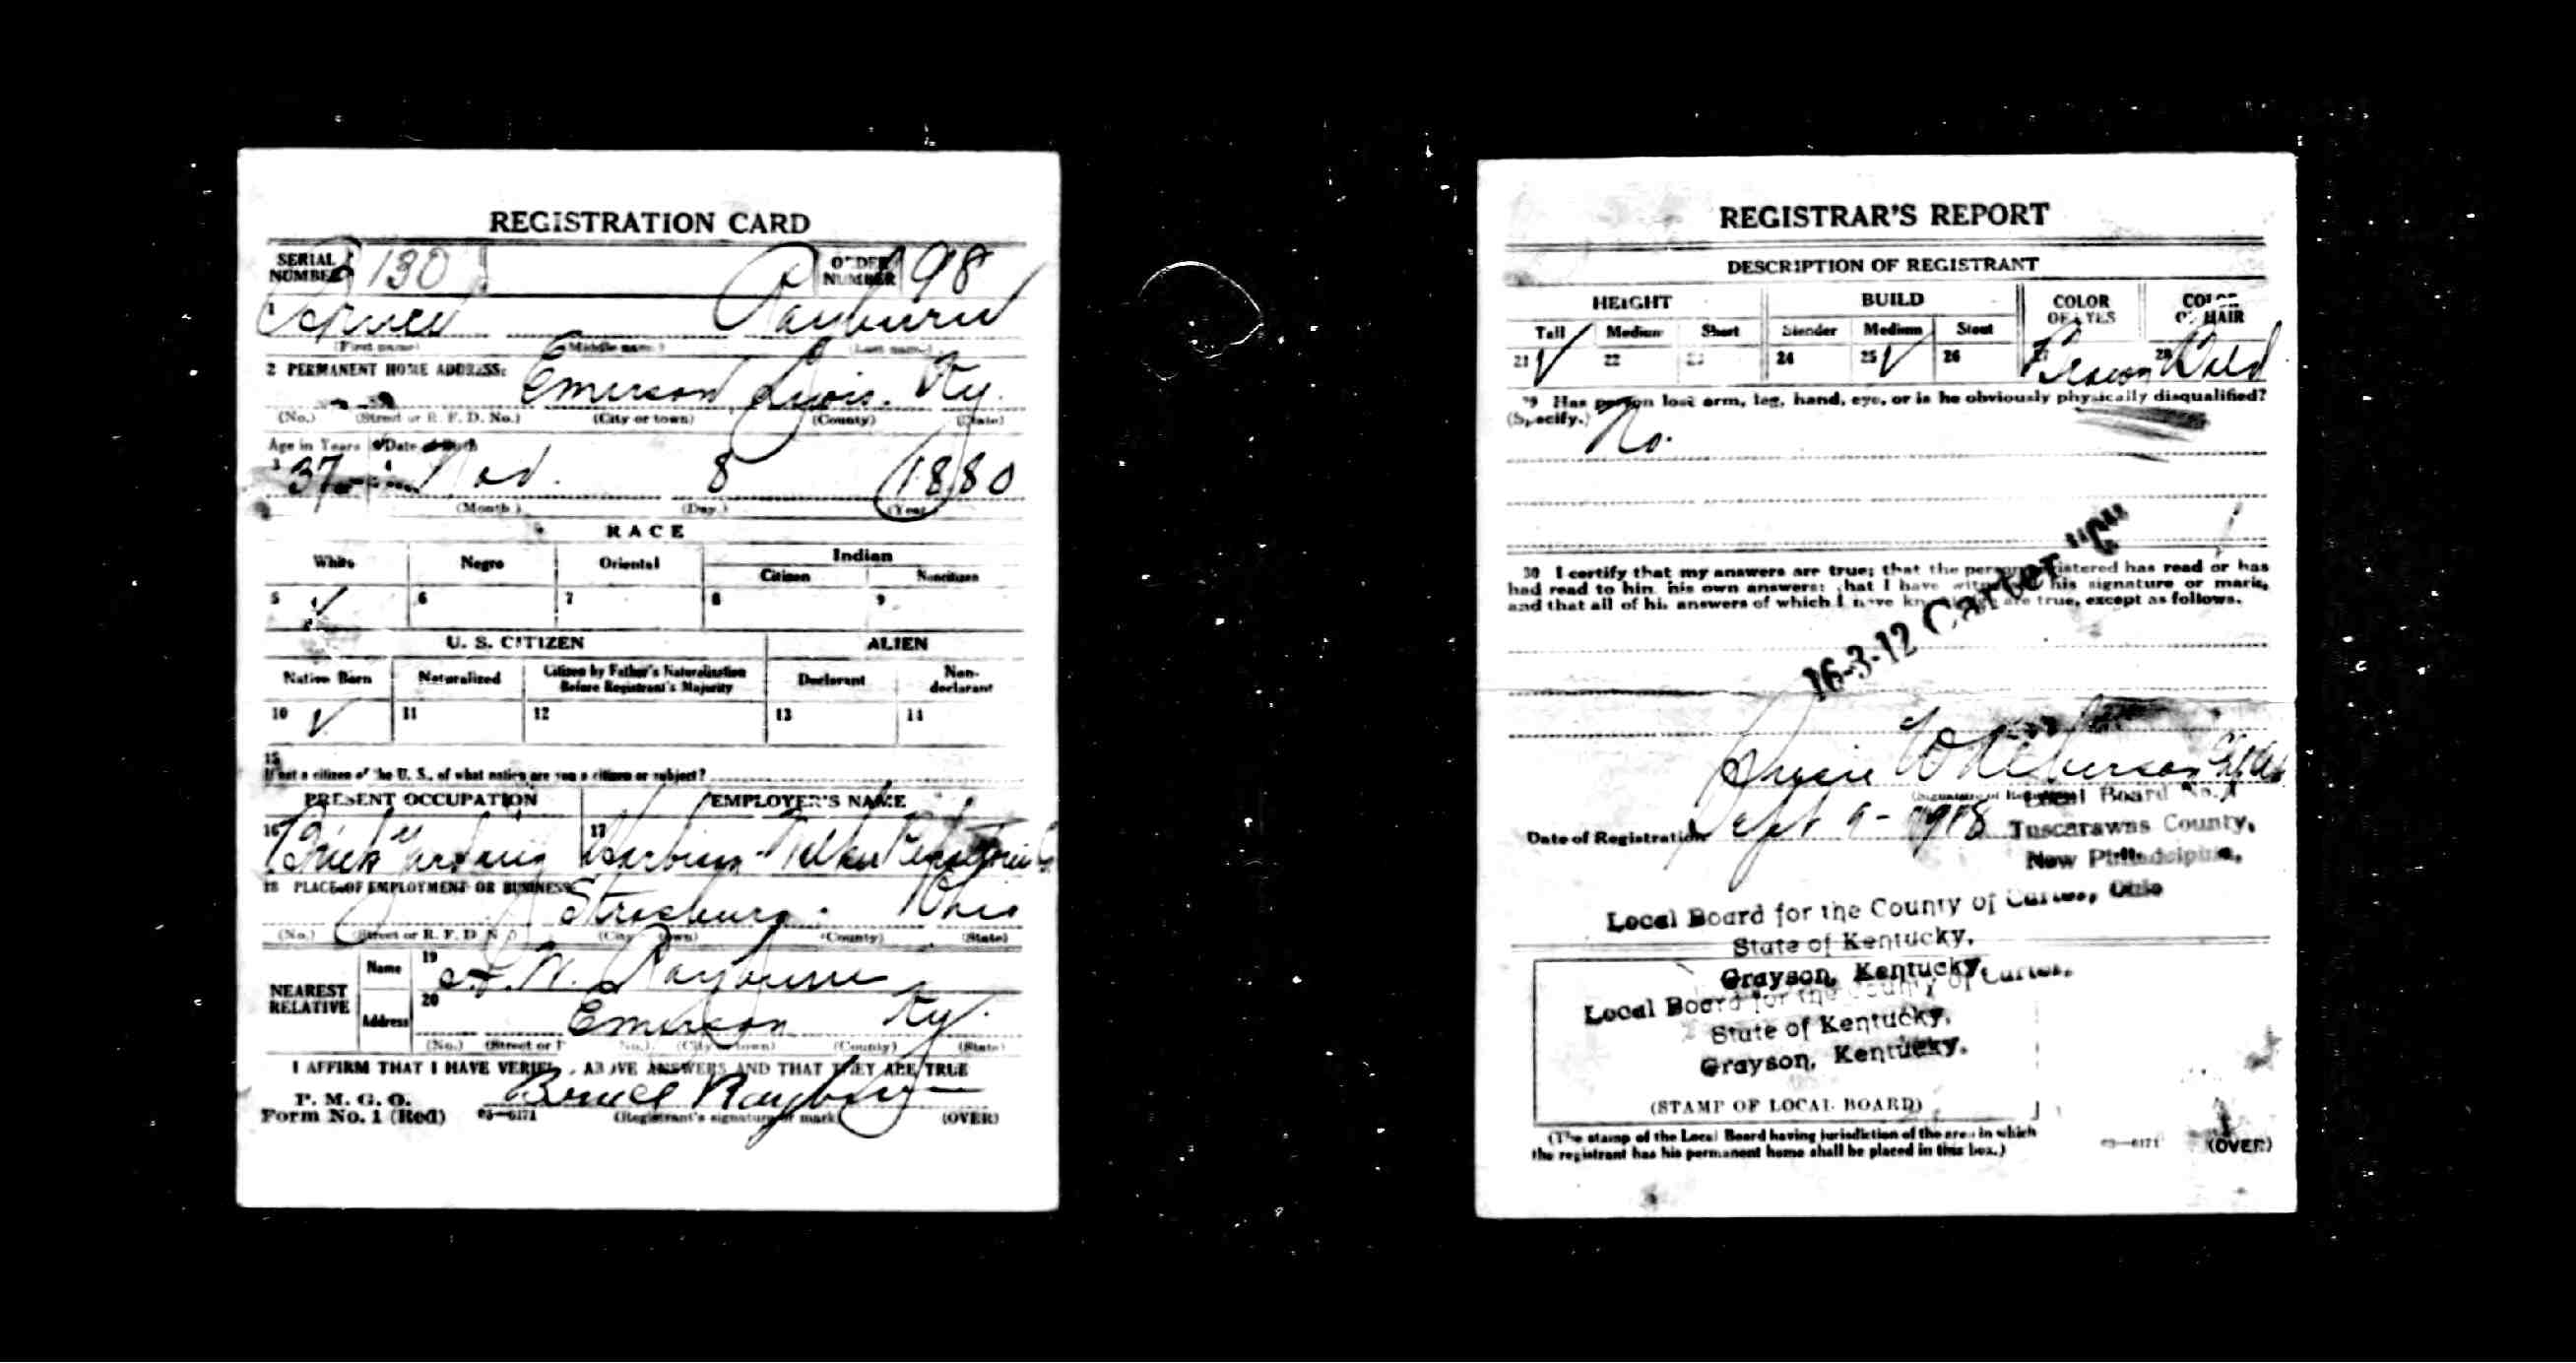 REGISTRATION CARD
SERIAL NUMBER 130 ORDER NUMBER 98
1 Rayburn
(First name) (Middle name) (Last name)
2 PERMANENT HOME ADDRESS:
Emerson Ky.
(No.) (Street or R. F. D. No.) (City or town) (County) (State)
Age in Years Date of Birth
3 37 4 Nov. 8 1880
(Month.) (Day.) (Year
RACE
White Negro Oriental Indian
Citizen Noncitizen
5 ✓ 6 7 8 9
U. S. CITIZEN ALIEN
Native Born Naturalized Citizen by Father's Naturalization Before Registrant's Majority Declarant Non-declarant
10 ✓ 11 12 13 14
15
If not a citizen of the U. S., of what nation are you a citizen or subject?
PRESENT OCCUPATION EMPLOYER'S NAME
16 Brick 17 Walker
18 PLACE OF EMPLOYMENT OR BUSINESS:
Strasburg. Ohio
(No.) (Street or R. F. D. No.) (City or town) (County) (State)
NEAREST RELATIVE
Name 19 Rayburn
Address 20 Emerson Ky.
(No.) (Street or No.) (City or town) (County) (State)
I AFFIRM THAT I HAVE VERIFIED ABOVE ANSWERS AND THAT THEY ARE TRUE
P. M. G. O.
Form No. 1 (Red) 03—6171 (Registrant's signature or mark) (OVER)
Bruce Rayburn
REGISTRAR'S REPORT
DESCRIPTION OF REGISTRANT
HEIGHT BUILD COLOR OF EYES COLOR OF HAIR
Tall Medium Short Slender Medium Stout
21 ✓ 22 23 24 25 ✓ 26 27 Brown 28
29 Has person lost arm, leg, hand, eye, or is he obviously physically disqualified?
(Specify.) No.
30 I certify that my answers are true; that the person registered has read or has
had read to him his own answers; that I have witnessed his signature or mark,
and that all of his answers of which I have knowledge are true, except as follows.
16-3-12 Carter "C"
(Signature of Registrar)
Date of Registration Sept 9-1918
Local Board No. 1
Tuscarawas County,
New Philadelphia,
Ohio
Local Board for the County of Carter,
State of Kentucky,
Grayson, Kentucky.
Local Board for the County of Carter,
State of Kentucky,
Grayson, Kentucky.
(STAMP OF LOCAL BOARD)
(The stamp of the Local Board having jurisdiction of the area in which
the registrant has his permanent home shall be placed in this box.)
03—6171 (OVER)